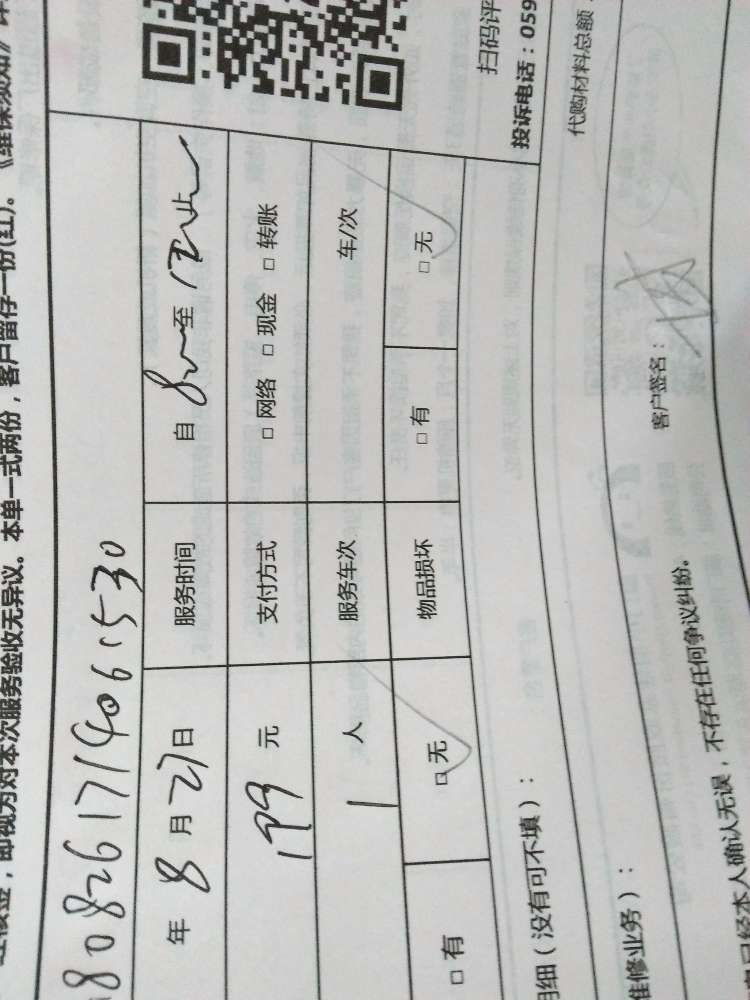 即视为对本次服务验收无异议。本单一式两份，客户留存一份(红)。《维保须知》
808261714061530
年 8 月 27 日 服务时间 自 8 至 12 止
199 元 支付方式 □ 网络 □ 现金 □ 转账
1 人 服务车次 车/次
□ 有 □ 无 物品损坏 □ 有 □ 无
扫码评
投诉电话：059
明细（没有可不填）：
代购材料总额：
维修业务）：
客户签名：
已经本人确认无误，不存在任何争议纠纷。